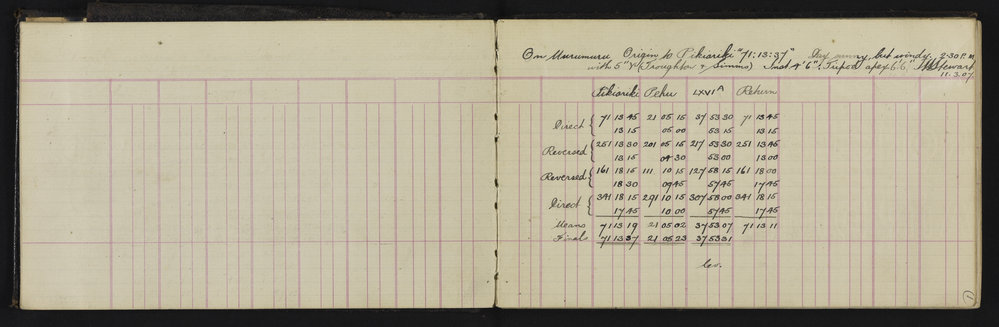 On Urumuru Origin to Pikiariki "71:13:37" Day sunny, but windy. 2-30 P.M.
with 5" (Troughton & Simms) Inst 4'6"; Tripod apex 6'6" Stewart
11.3.07
Pikiariki Pehu LXVI A Return
Direct { 71 13 45 21 05 15 37 53 30 71 13 45
13 15 05 00 53 15 13 15
Reversed { 251 13 30 201 05 15 217 53 30 251 13 45
13 15 04 30 53 00 13 00
Reversed { 161 18 15 111 10 15 127 58 15 161 18 00
18 30 09 45 57 45 17 45
Direct { 341 18 15 291 10 15 307 58 00 341 18 15
17 45 10 00 57 45 17 45
Means 71 13 19 21 05 02 37 53 07 71 13 11
Finals 71 13 37 21 05 23 37 53 31
1